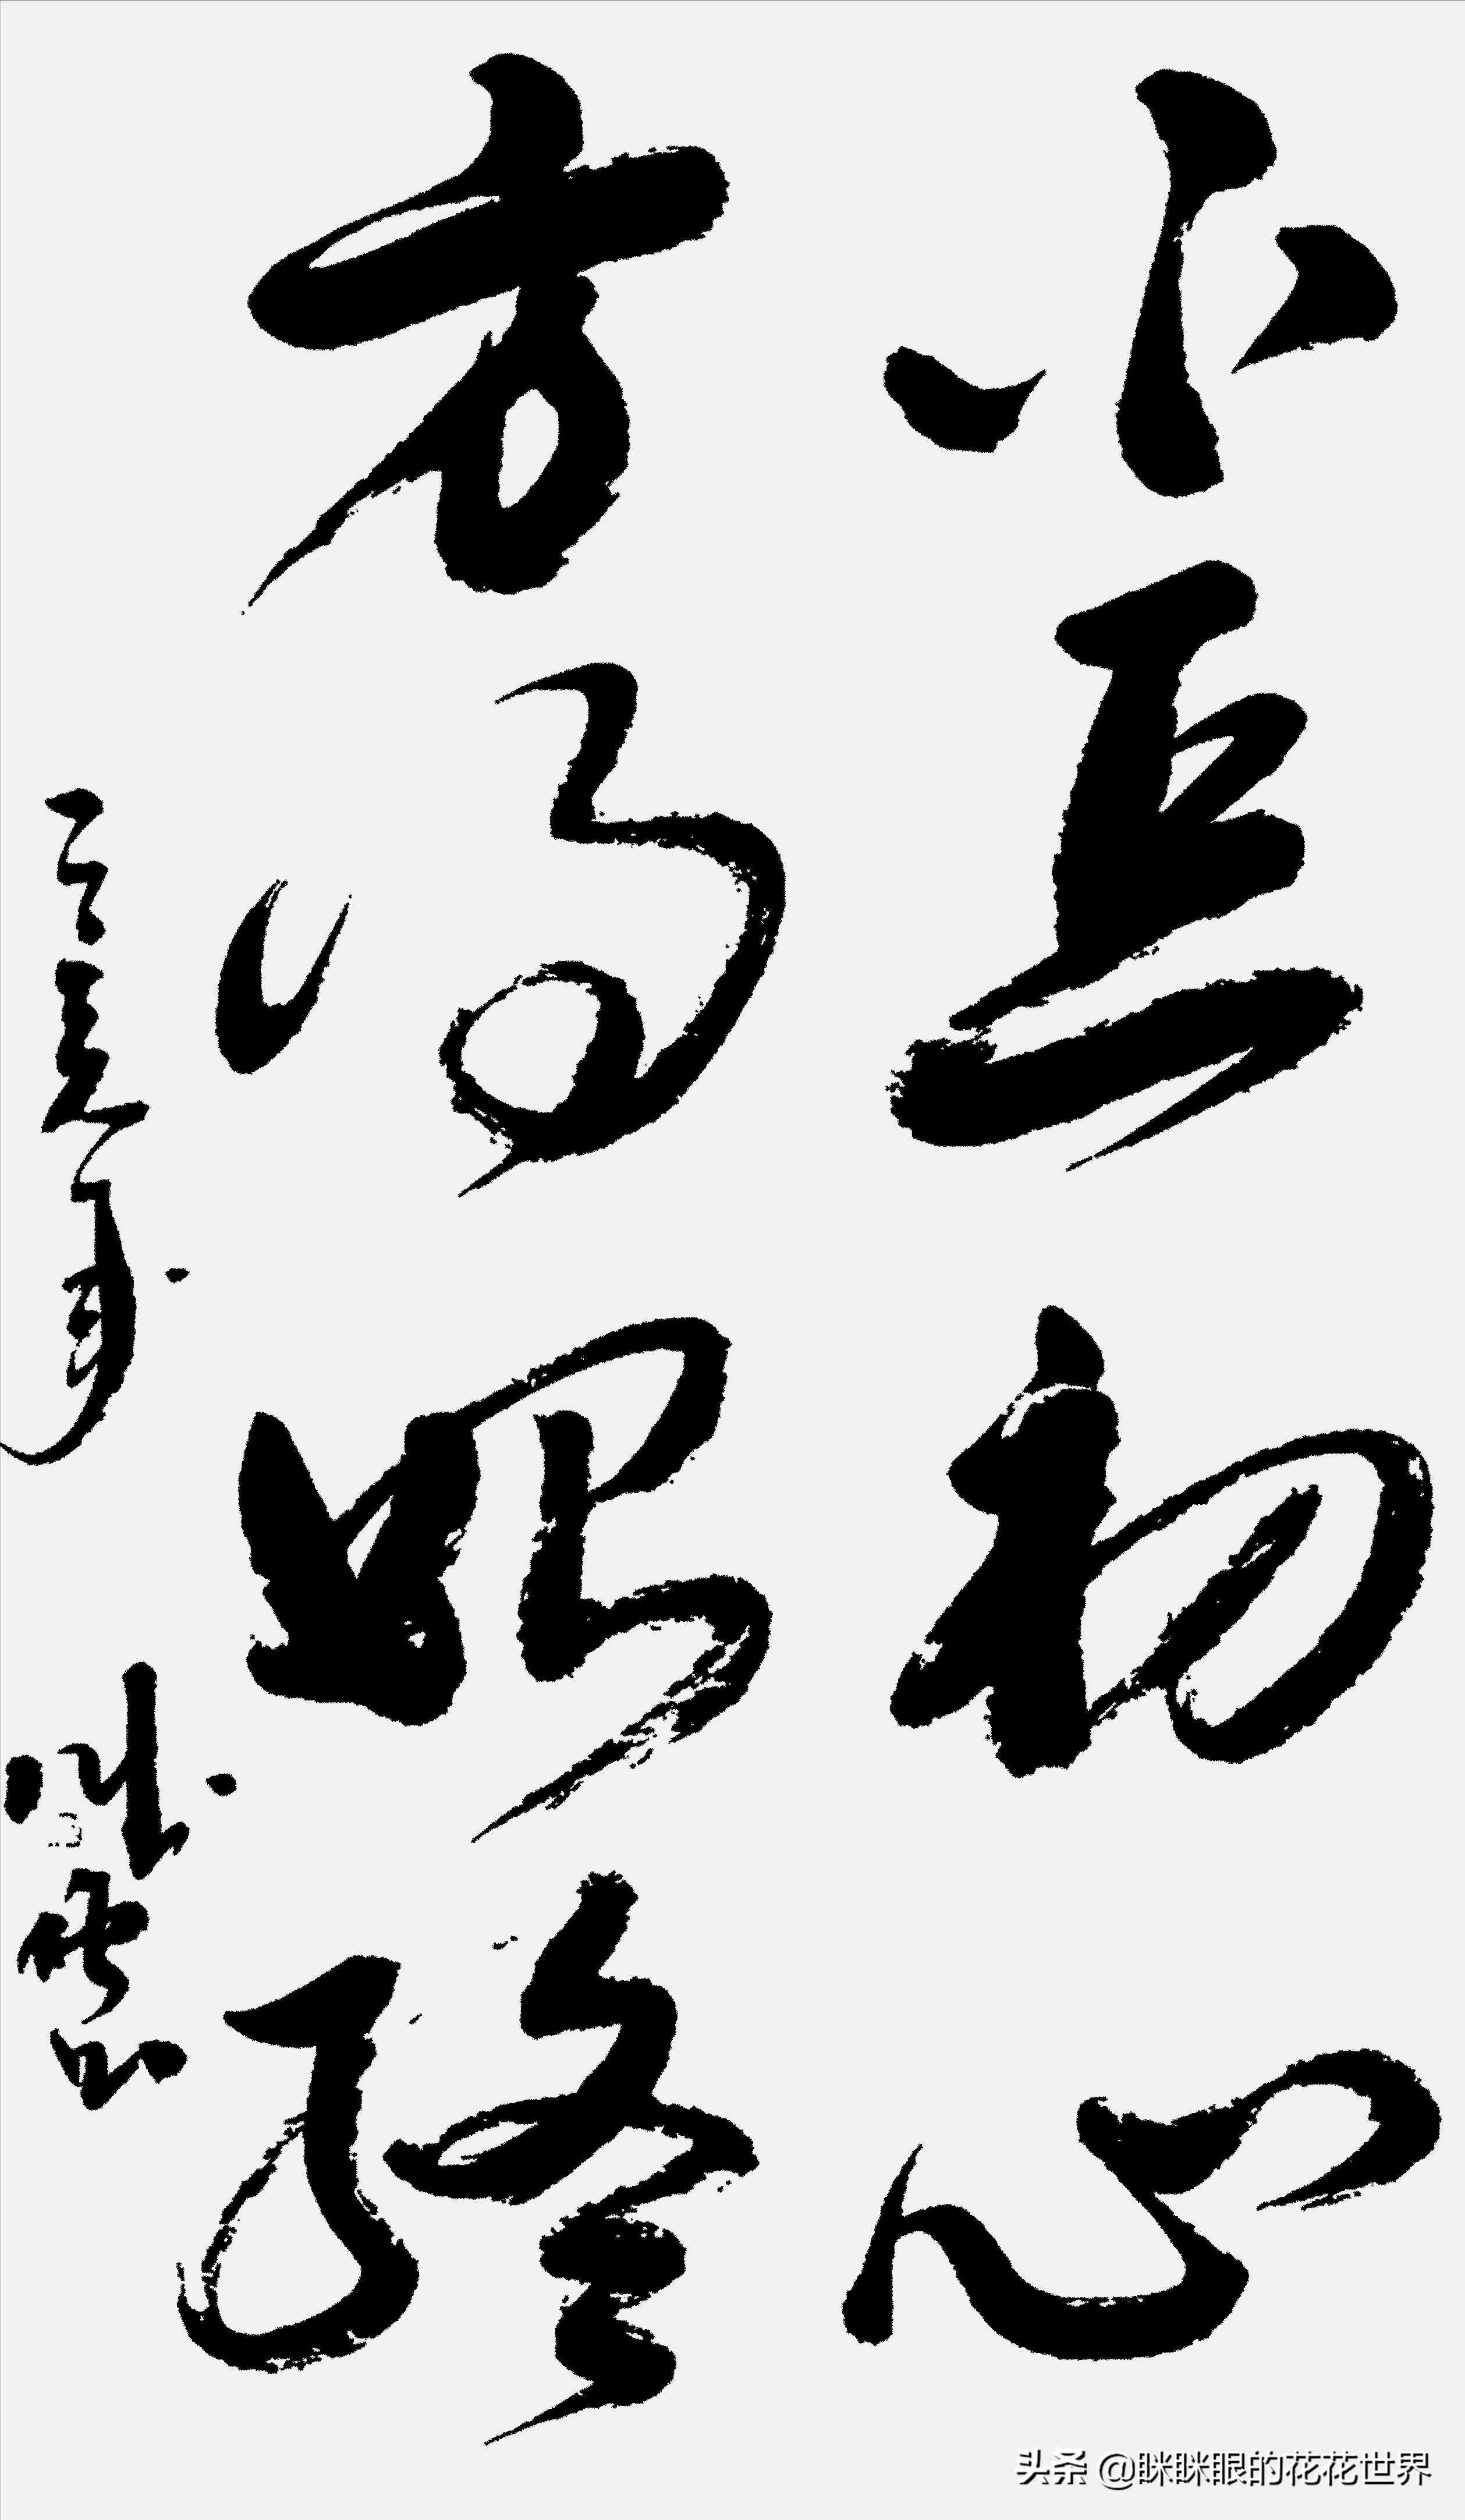 不忘初心
方得始终
头条 @眯眯眼的花花世界